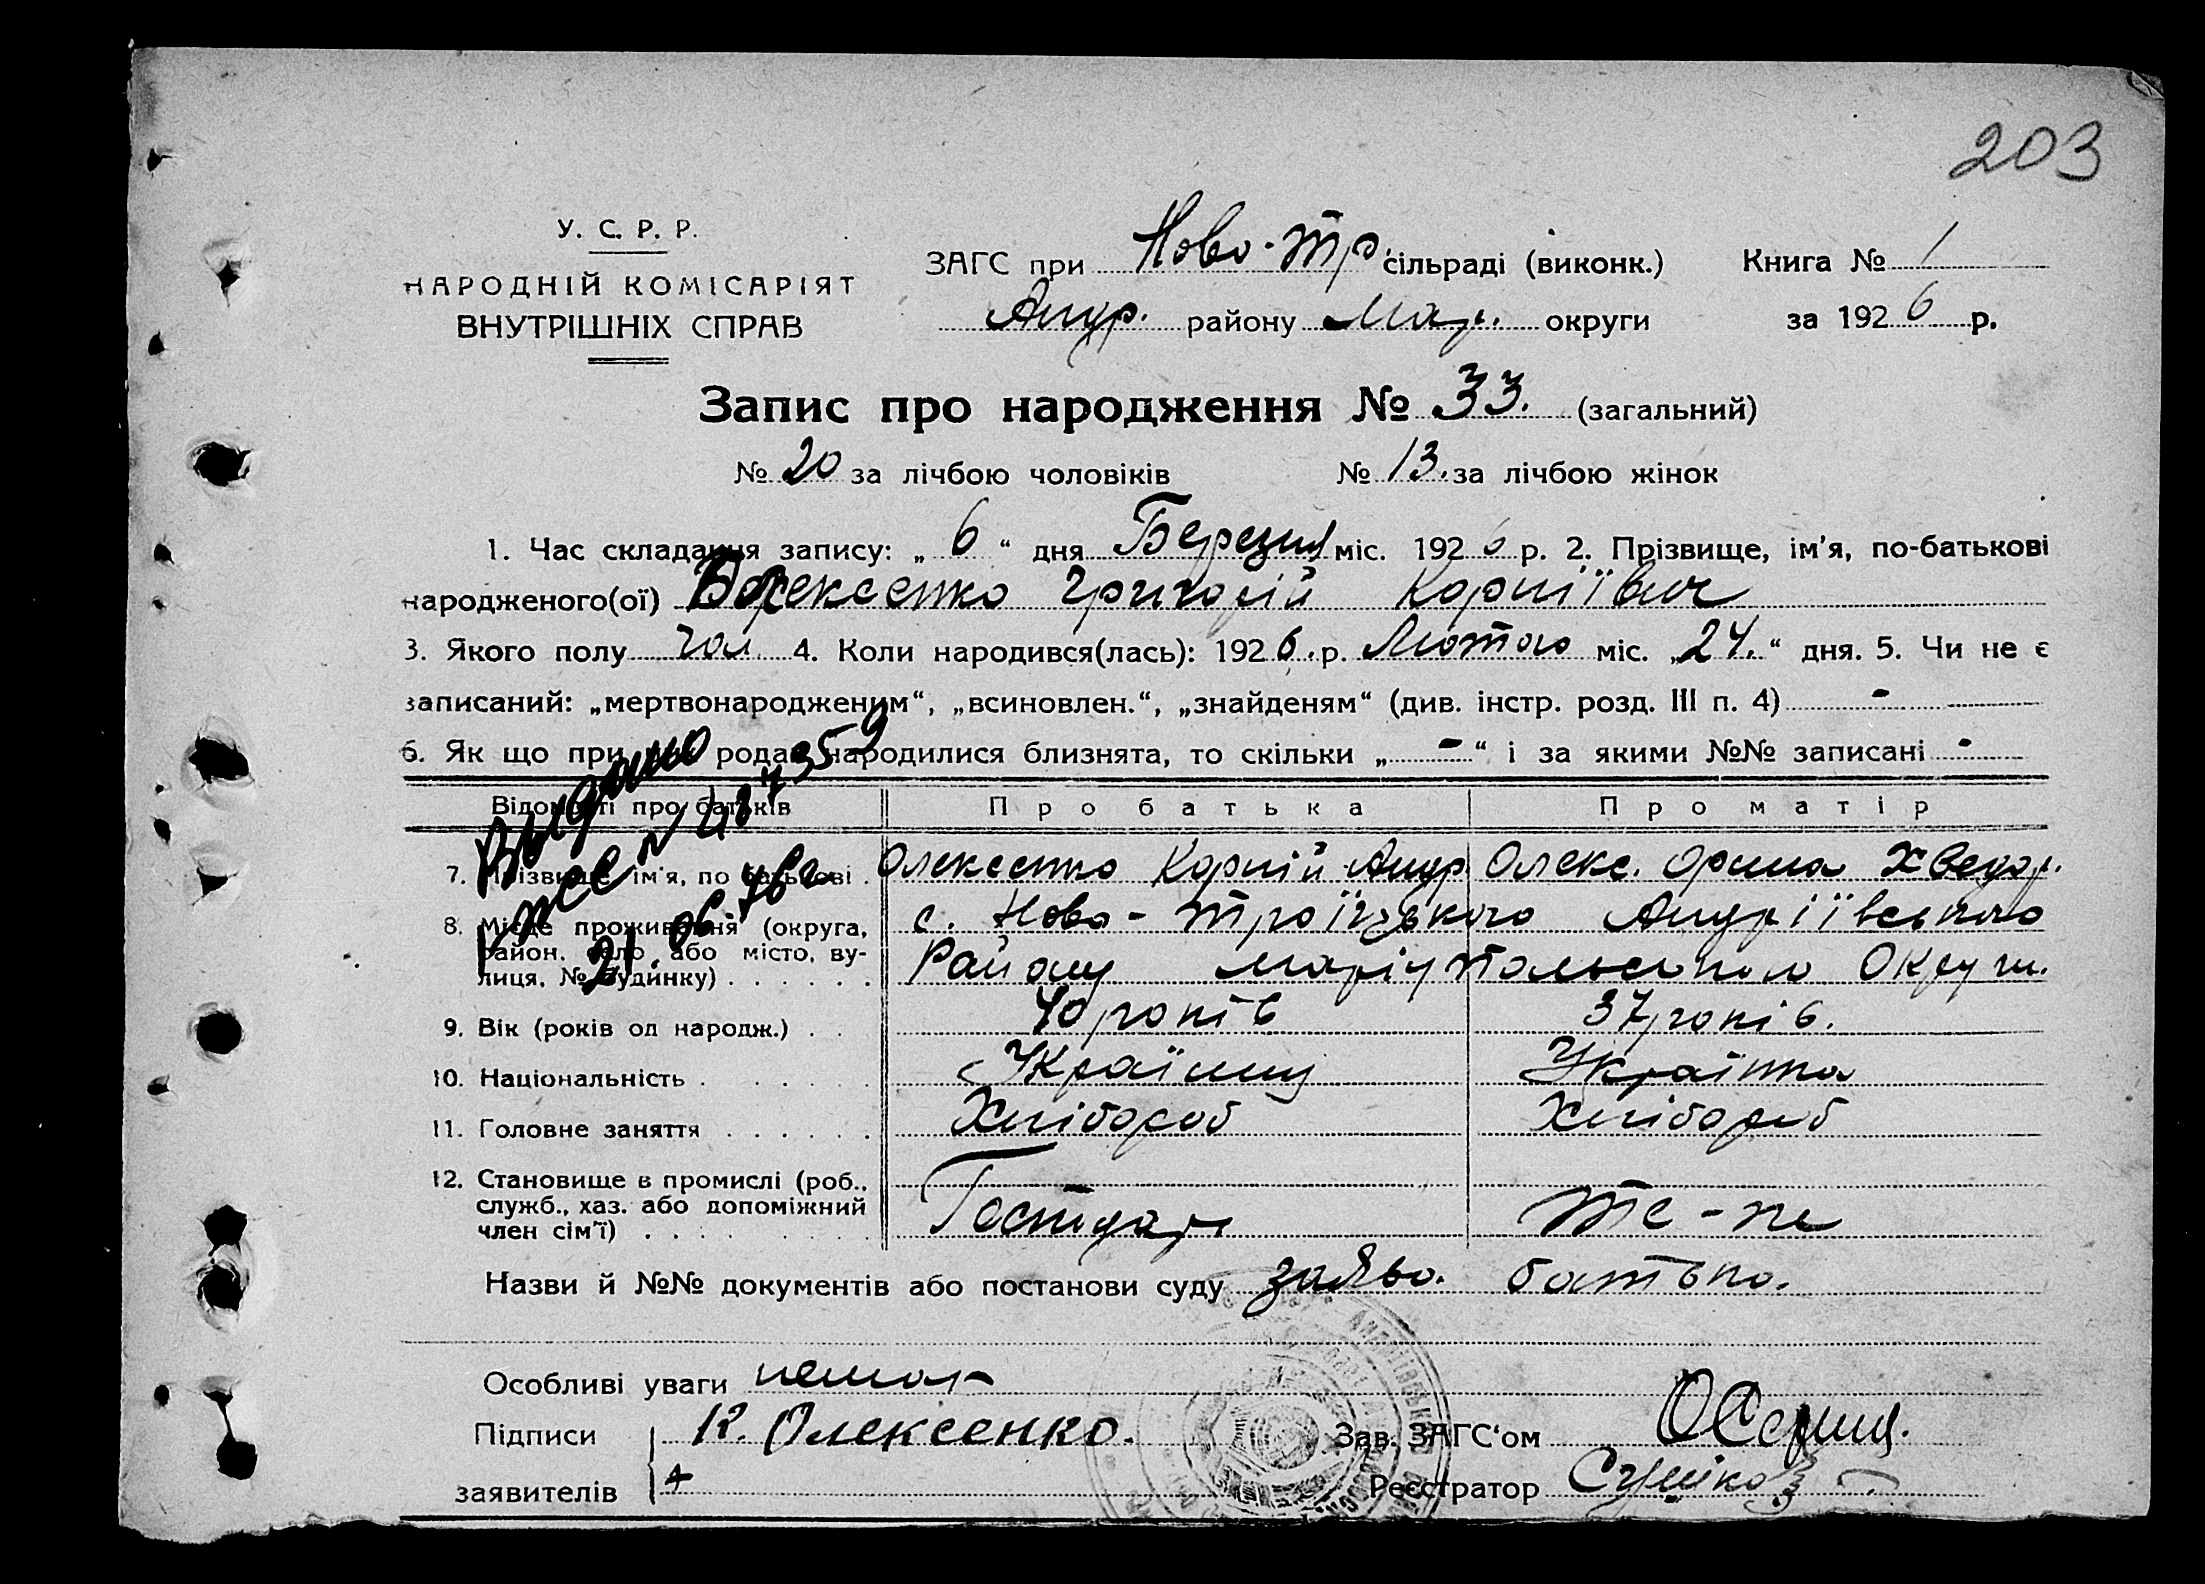 203
У. С. Р. Р.
НАРОДНІЙ КОМІСАРІЯТ
ВНУТРІШНІХ СПРАВ
ЗАГС при Ново-Тр. сільраді (виконк.) Книга № 1
Андр. району Мар. округи за 1926 р.
Запис про народження № 33. (загальний)
№ 20 за лічбою чоловіків № 13. за лічбою жінок
1. Час складання запису: „ 6 “ дня Березня міс. 1926 р. 2. Прізвище, ім’я, по-батькові
народженого(ої) Григорій Корніївич
3. Якого полу чол. 4. Коли народився(лась): 1926. р. Лютого міс. „24.“ дня. 5. Чи не є
записаний: „мертвонародженим“, „всиновлен.“, „знайденям“ (див. інстр. розд. III п. 4) -
6. Як що при родах народилися близнята, то скільки „ - “ і за якими №№ записані -
Відомості про батьків Про батька Про матір
7. Прізвище, ім’я, по батькові . Олексенко Корній Андр. Олекс. Орина Хведор.
8. Місце проживання (округа, с. Ново-Троїцького Андріївського
район, село або місто, ву-
лиця, № будинку) . . . . . . Району Маріупольського Округи.
9. Вік (років од народж.) . . 40 років 37 років.
10. Національність . . . . . . Українец Українка
11. Головне заняття . . . . . . Хлібороб Хлібороб
12. Становище в промислі (роб.,
служб., хаз. або допоміжний Господар те-же
член сім’ї) . . . . . . . .
Видано
21. 06. 76 г.
Назви й №№ документів або постанови суду заява. батька.
Особливі уваги немає
Підписи К. Олексенко. Зав. ЗАГС‘ом
заявителів Реєстратор